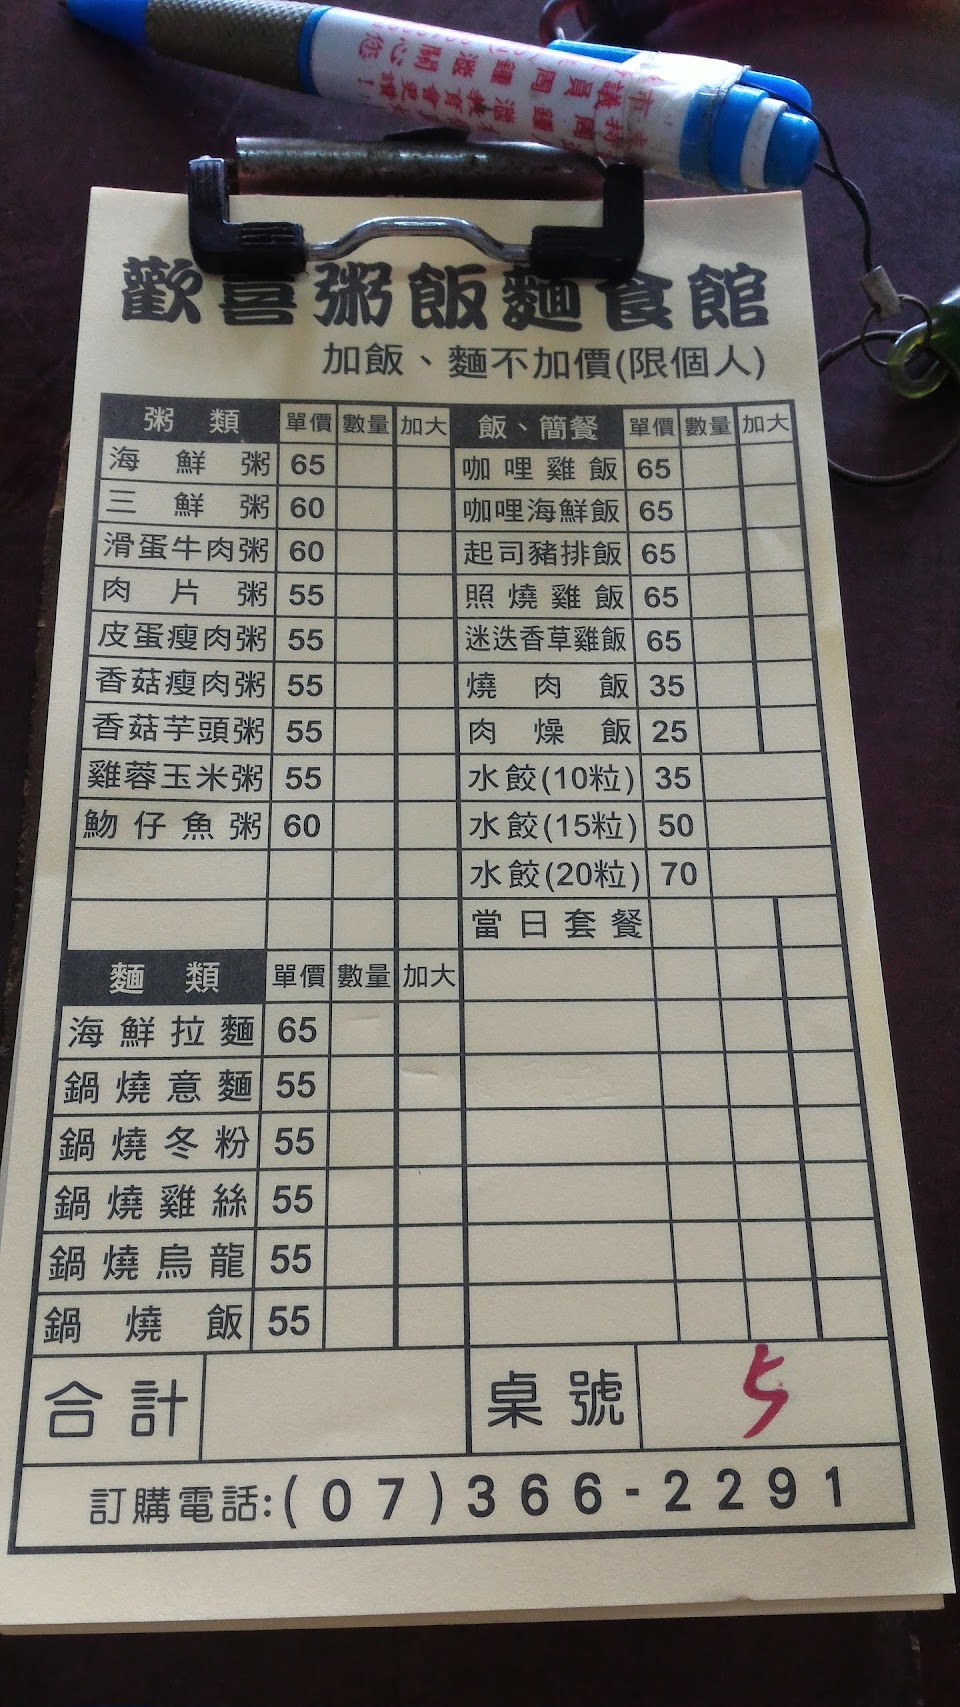 歡喜粥飯麵食館
加飯、麵不加價(限個人)
粥類 單價 數量 加大
海鮮粥 65
三鮮粥 60
滑蛋牛肉粥 60
肉片粥 55
皮蛋瘦肉粥 55
香菇瘦肉粥 55
香菇芋頭粥 55
雞蓉玉米粥 55
魩仔魚粥 60
麵類 單價 數量 加大
海鮮拉麵 65
鍋燒意麵 55
鍋燒冬粉 55
鍋燒雞絲 55
鍋燒烏龍 55
鍋燒飯 55
飯、簡餐 單價 數量 加大
咖哩雞飯 65
咖哩海鮮飯 65
起司豬排飯 65
照燒雞飯 65
迷迭香草雞飯 65
燒肉飯 35
肉燥飯 25
水餃(10粒) 35
水餃(15粒) 50
水餃(20粒) 70
當日套餐
合計
桌號 5
訂購電話:(07)366-2291